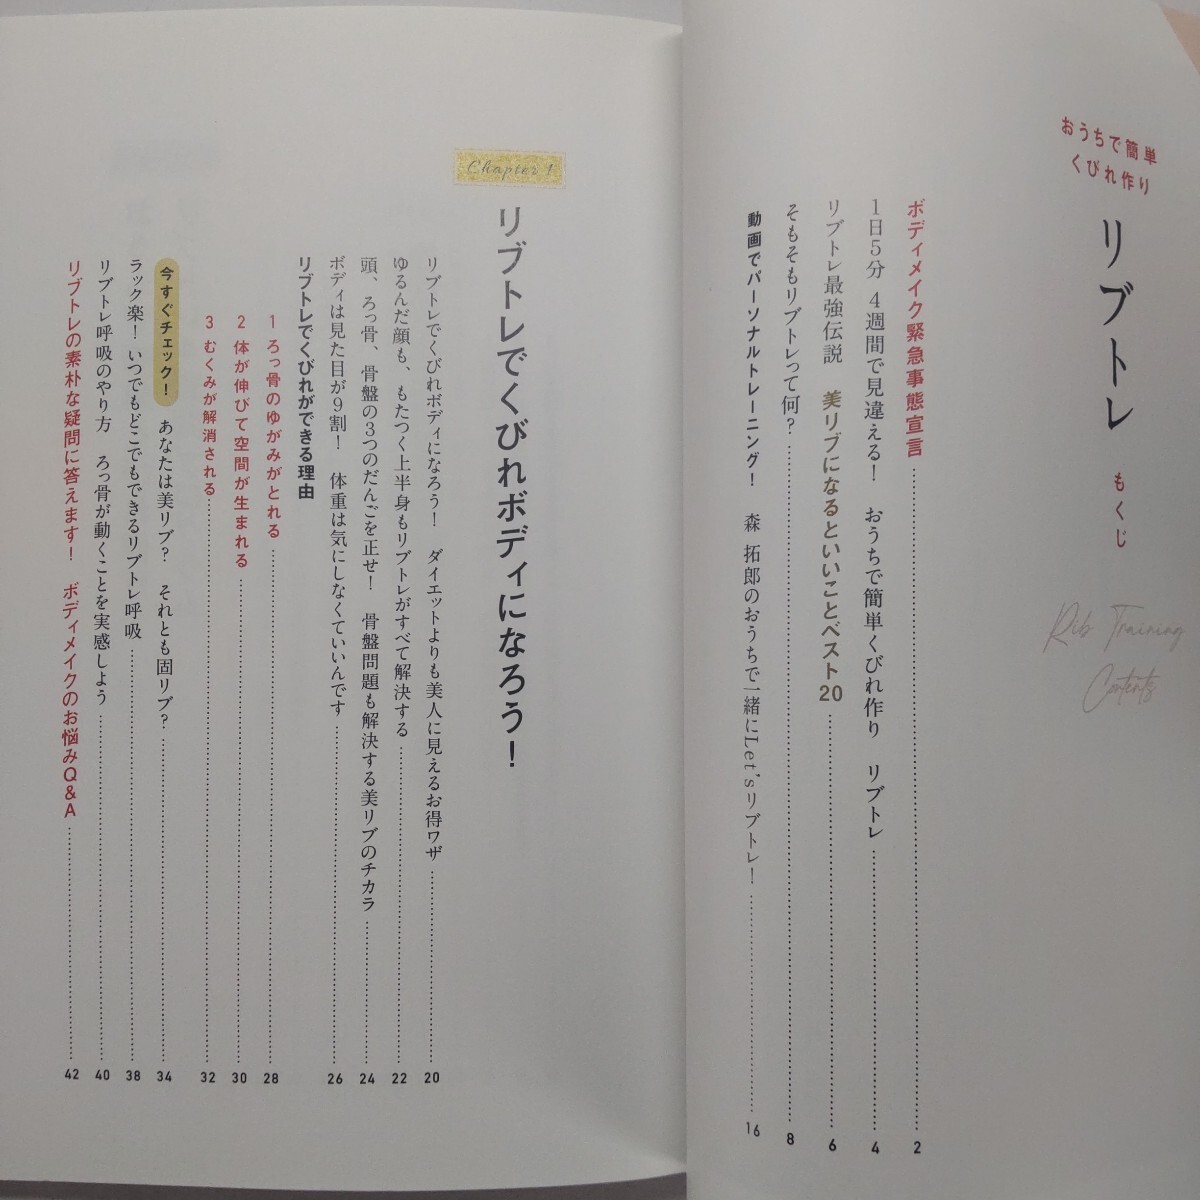 おうちで簡単
くびれ作り
リブトレ もくじ
Rib Training
Contents
ボディメイク緊急事態宣言 2
1日5分 4週間で見違える！ おうちで簡単くびれ作り リブトレ 4
リブトレ最強伝説 美リブになるといいことベスト20 6
そもそもリブトレって何？ 8
動画でパーソナルトレーニング！ 森 拓郎のおうちで一緒にLet'sリブトレ！ 16
Chapter 1
リブトレでくびれボディになろう！
リブトレでくびれボディになろう！ ダイエットよりも美人に見えるお得ワザ 20
ゆるんだ顔も、もたつく上半身もリブトレがすべて解決する 22
頭、ろっ骨、骨盤の3つのだんごを正せ！ 骨盤問題も解決する美リブのチカラ 24
ボディは見た目が9割！ 体重は気にしなくていいんです 26
リブトレでくびれができる理由
1 ろっ骨のゆがみがとれる 28
2 体が伸びて空間が生まれる 30
3 むくみが解消される 32
今すぐチェック！ あなたは美リブ？ それとも固リブ？ 34
ラック楽！いつでもどこでもできるリブトレ呼吸 38
リブトレ呼吸のやり方 ろっ骨が動くことを実感しよう 40
リブトレの素朴な疑問に答えます！ ボディメイクのお悩みQ&A 42